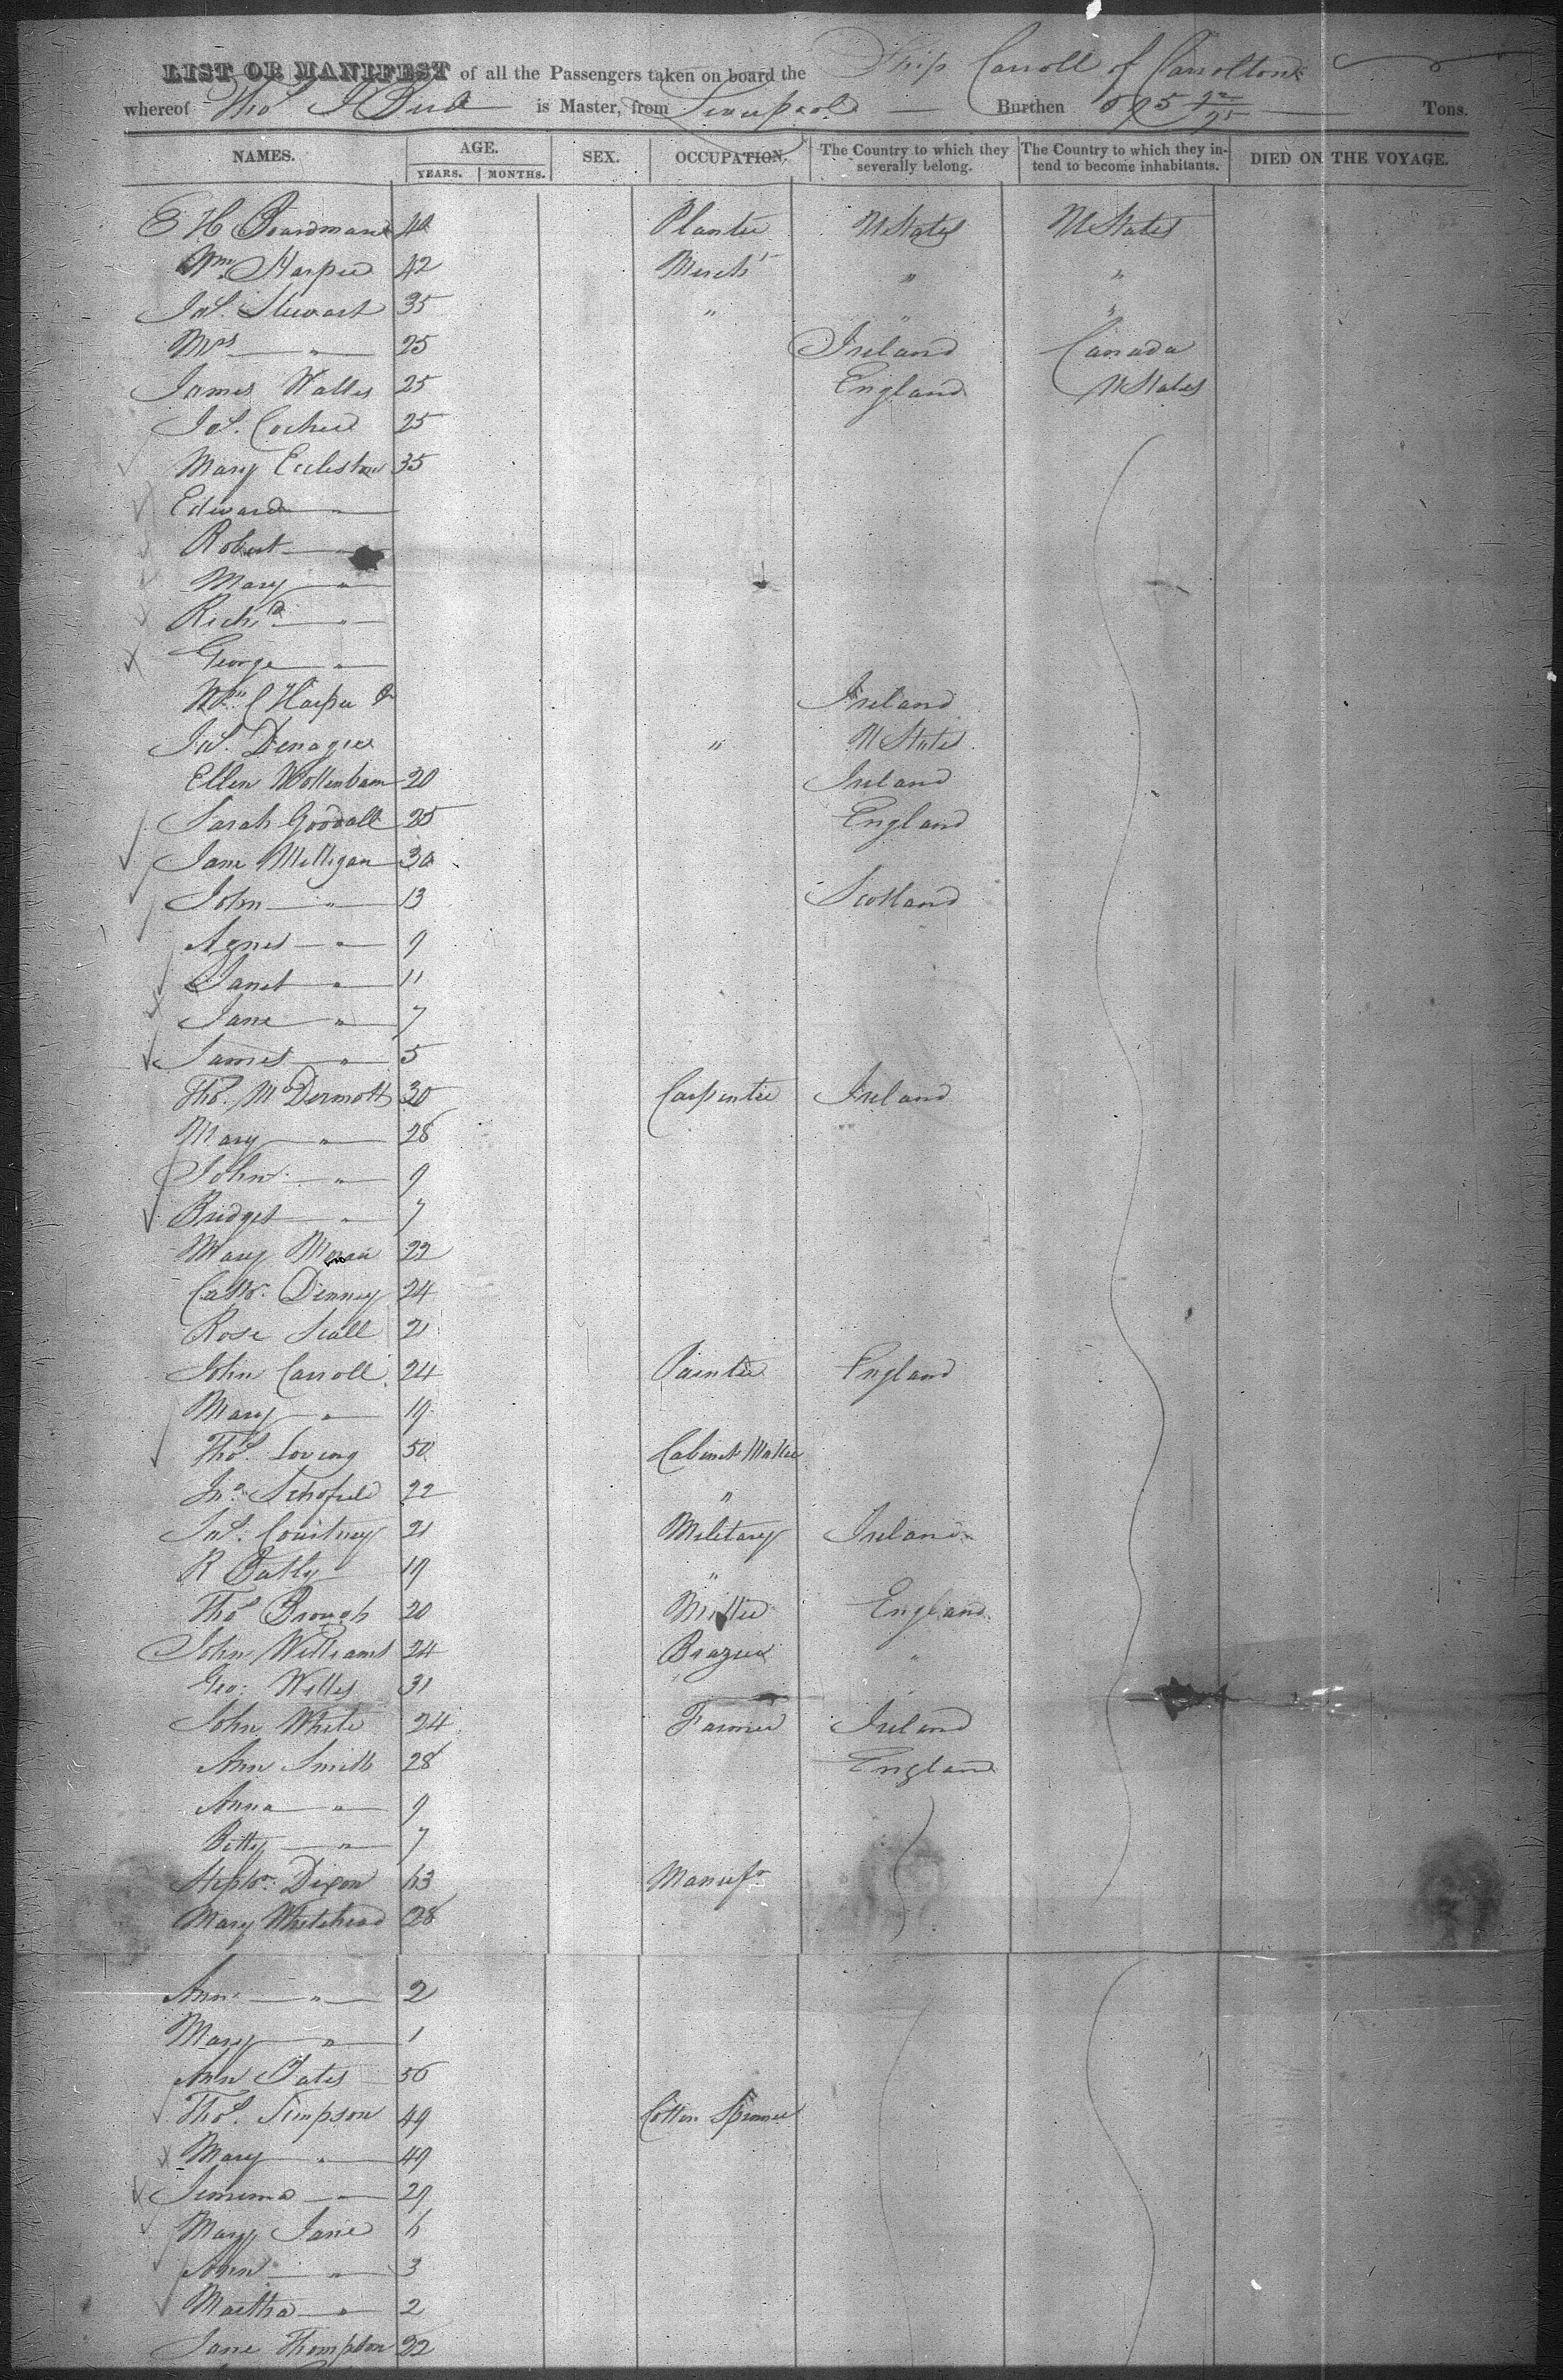 LIST OR MANIFEST of all the Passengers taken on board the Ship Carroll of Carrolton
whereof Thos J Bird is Master, from Liverpool Burthen 695 22/95 Tons.
NAMES. AGE. YEARS. MONTHS. SEX. OCCUPATION. The Country to which they severally belong. The Country to which they intend to become inhabitants. DIED ON THE VOYAGE.
E H Boardman 40 Planter U States U States
Wm Harper 42 Mercht " "
Jas. Stewart 35 " " "
Mrs " 25 Ireland Canada
James Walles 25 England U States
Jos. 25
Mary Eccleston 35
Edward "
Robert "
Mary "
Richd "
George "
Wm. C Harper Ireland
Jas. " U States
Ellen 20 Ireland
Sarah Goodall 25 England
Jane Milligan 30
John " 13 Scotland
Agnes " 9
Janet " 11
Jane " 7
James " 5
Thos. McDermott 30 Carpenter Ireland
Mary " 28
John " 9
Bridget " 7
Mary Moran 22
Cathr. Denney 24
Rose Scall 21
John Carroll 24 Painter England
Mary " 19
Thos. Loveing 50 Cabinet Maker
Jno. Schofield 22 "
Jas. Courtney 21 Military Ireland
R Batly 19 "
Thos Brough 20 Miller England
John Williams 24 Brazier "
Geo: Willes 31
John White 24 Farmer Ireland
Ann Smith 28 England
Anna " 9
Betty " 7
Stephn. Dixon 43 Manufr
Mary Whitehead 28
Ann " 2
Mary " 1
Ann Bates 56
Thos. Simpson 49 Cotton Spinner
Mary " 49
Jemima " 29
Mary Jane 6
Ann " 3
Martha " 2
Jane Thompson 22